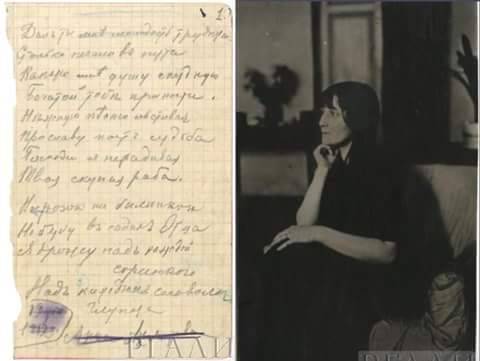 Далъ ты мнѣ молодость трудную
Столько печали въ пути
Какъже мнѣ душу скудную
Богатой тебѣ принести.
пѣсню льстивая
Про славу поетъ судьба
Господи я нерадивая
Твоя скупая раба.
Ни розой ни былинкой
Не буду въ садахъ Отца
Я дрожу надъ каждой
соринкою
Надъ каждымъ словомъ
глупца